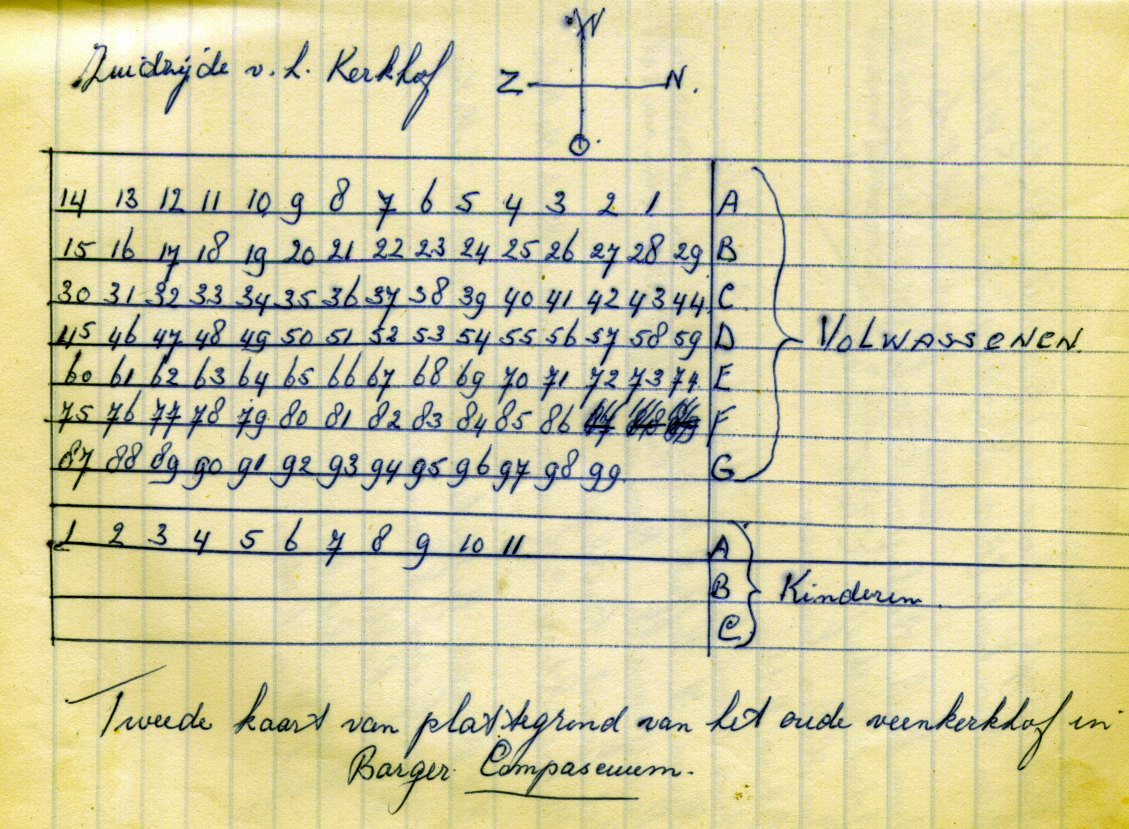 W
Zuidzijde v. h. Kerkhof Z N.
O
14 13 12 11 10 9 8 7 6 5 4 3 2 1 A
15 16 17 18 19 20 21 22 23 24 25 26 27 28 29 B
30 31 32 33 34 35 36 37 38 39 40 41 42 43 44 C
45 46 47 48 49 50 51 52 53 54 55 56 57 58 59 D
VOLWASSENEN.
60 61 62 63 64 65 66 67 68 69 70 71 72 73 74 E
75 76 77 78 79 80 81 82 83 84 85 86 F
87 88 89 90 91 92 93 94 95 96 97 98 99 G
1 2 3 4 5 6 7 8 9 10 11 A
B Kinderen.
C
Tweede kaart van plattegrond van het oude veenkerkhof in
Barger Compascuum.